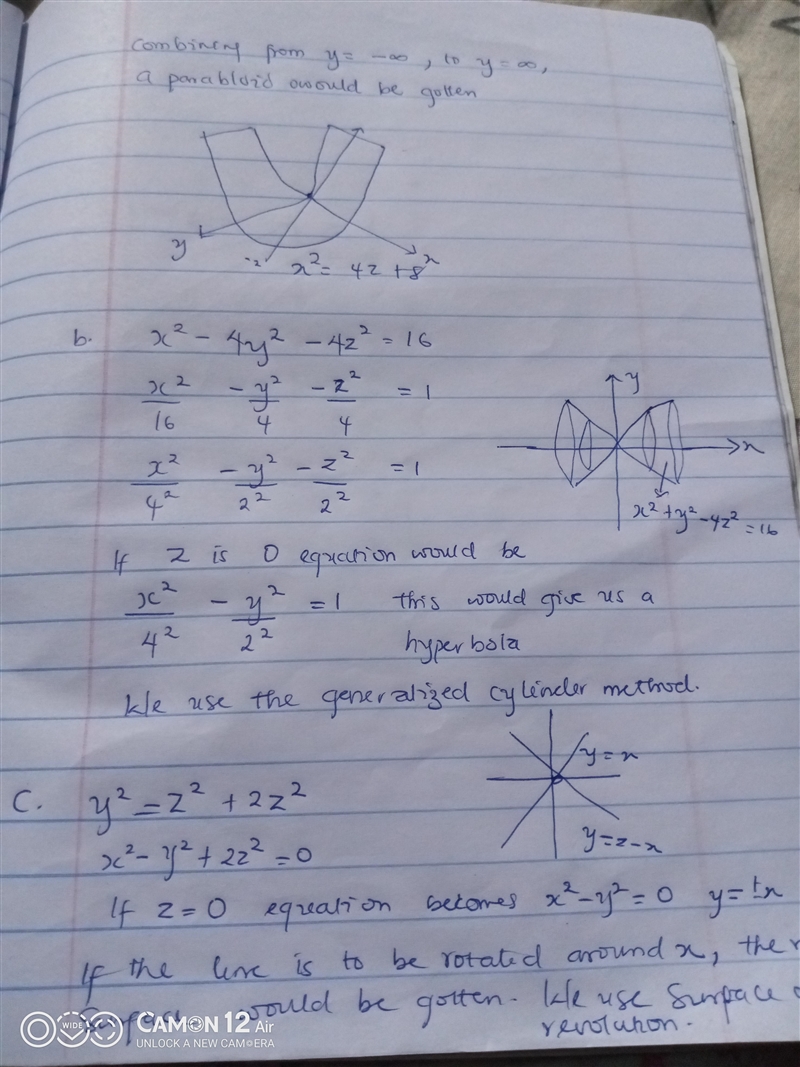 combining from y = -∞, to y = ∞,
a parabloid would be gotten
y
-2
x² = 4z + 8
x
b. x² - 4y² - 4z² = 16
x²/16 - y²/4 - z²/4 = 1
y
x
x²/4² - y²/2² - z²/2² = 1
x² + y² - 4z² = 16
If z is 0 equation would be
x²/4² - y²/2² = 1 this would give us a
hyperbola
We use the generalized cylinder method.
y = x
C. y² = z² + 2z²
x² - y² + 2z² = 0
y = z - x
If z = 0 equation becomes x² - y² = 0 y = ±x
If the line is to be rotated around x, the
would be gotten. We use surface
revolution.
WIDE CAMON 12 Air
UNLOCK A NEW CAMERA